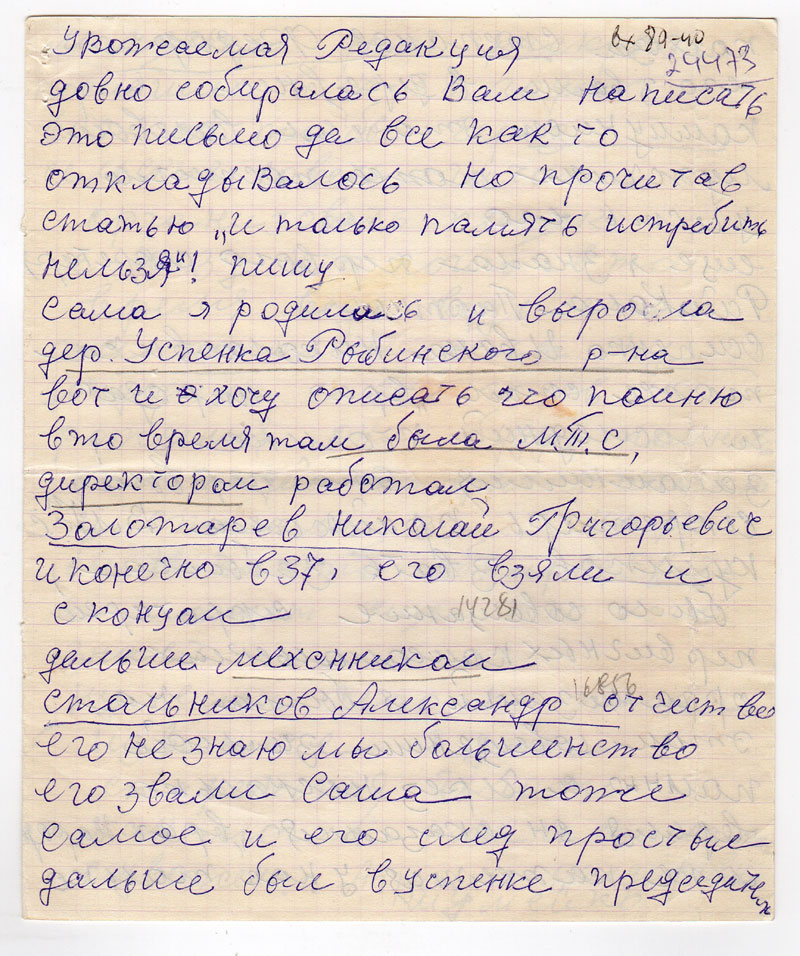 вх 89-40
24473
Увожаемая Редакция
довно собиралась Вам написать
это письмо да все как то
откладывалось но прочитав
статью „и только память истребить
нельзя"! пишу
сама я родилась и выросла
дер. Успенка Рыбинского р-на
вот и хочу описать что помню
в то время там была М.Т.С,
директором работал
Золотарев Николай Григорьевич
и конечно в 37, его взяли и
с концом
14281
дальше механником
16856
стальников Александр отчество
его не знаю мы большинство
его звали Саша тоже
самое и его след простыл
дальше был в Успенке председателем